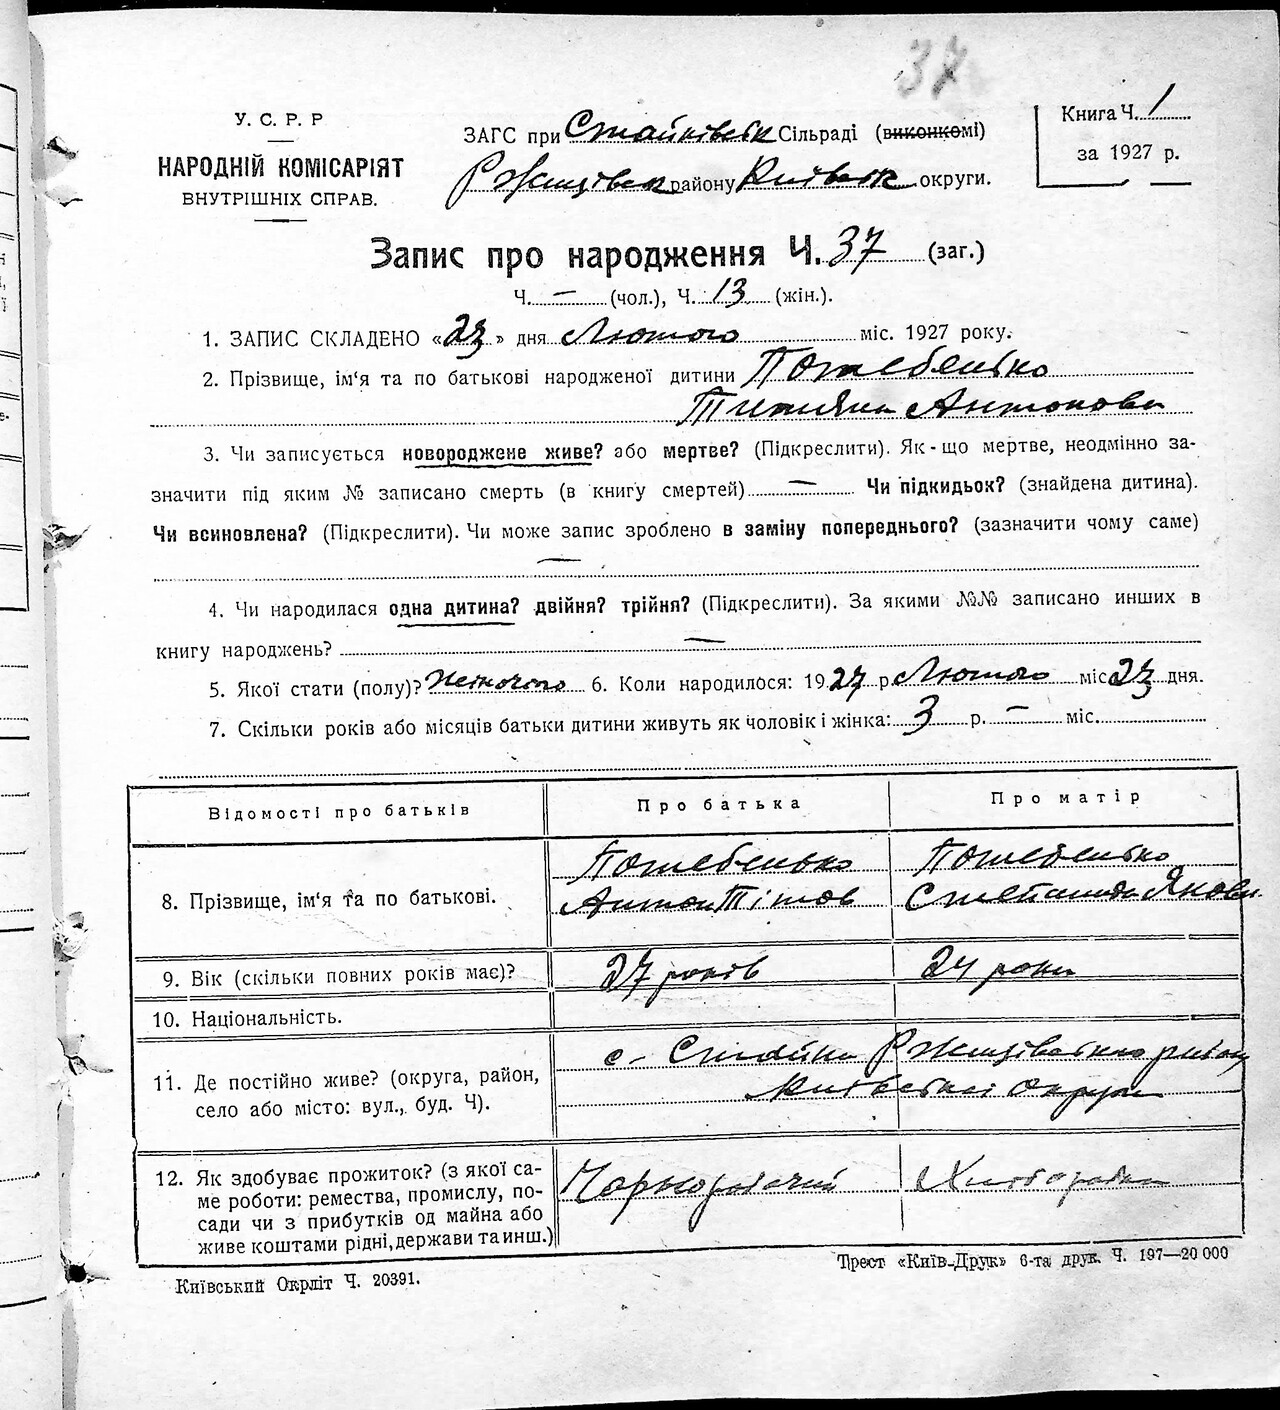 37
У. С. Р. Р
НАРОДНІЙ КОМІСАРІЯТ
ВНУТРІШНІХ СПРАВ.
ЗАГС при Стайківськ Сільраді (виконкомі)
Ржищівськ району Київськ округи.
Книга Ч. 1
за 1927 р.
Запис про народження Ч. 37 (заг.)
Ч. — (чол.), Ч. 13 (жін.).
1. ЗАПИС СКЛАДЕНО «23» дня Лютого міс. 1927 року.
2. Прізвище, ім'я та по батькові народженої дитини Потебенько
Титяна Антонова
3. Чи записується новороджене живе? або мертве? (Підкреслити). Як-що мертве, неодмінно за-
значити під яким № записано смерть (в книгу смертей) — Чи підкидьок? (знайдена дитина).
Чи всиновлена? (Підкреслити). Чи може запис зроблено в заміну попереднього? (зазначити чому саме)
—
4. Чи народилася одна дитина? двійня? трійня? (Підкреслити). За якими №№ записано инших в
книгу народжень? —
5. Якої стати (полу)? Жіночого 6. Коли народилося: 1927 р. Лютого міс 23 дня.
7. Скільки років або місяців батьки дитини живуть як чоловік і жінка: 3 р. — міс.
Відомості про батьків
Про батька
Про матір
8. Прізвище, ім'я та по батькові.
Потебенько
Антон Тітов
Потебенько
Степанида Якови
9. Вік (скільки повних років має)?
27 років
24 роки
10. Національність.
11. Де постійно живе? (округа, район,
село або місто: вул., буд. Ч).
с. Стайки Ржищівського району
Київської Округи
12. Як здобуває прожиток? (з якої са-
ме роботи: ремества, промислу, по-
сади чи з прибутків од майна або
живе коштами рідні, держави та инш.)
Чорноробочий
Хліборобка
Київський Окрліт Ч. 20391.
Трест «Київ-Друк» 6-та друк. Ч. 197—20 000